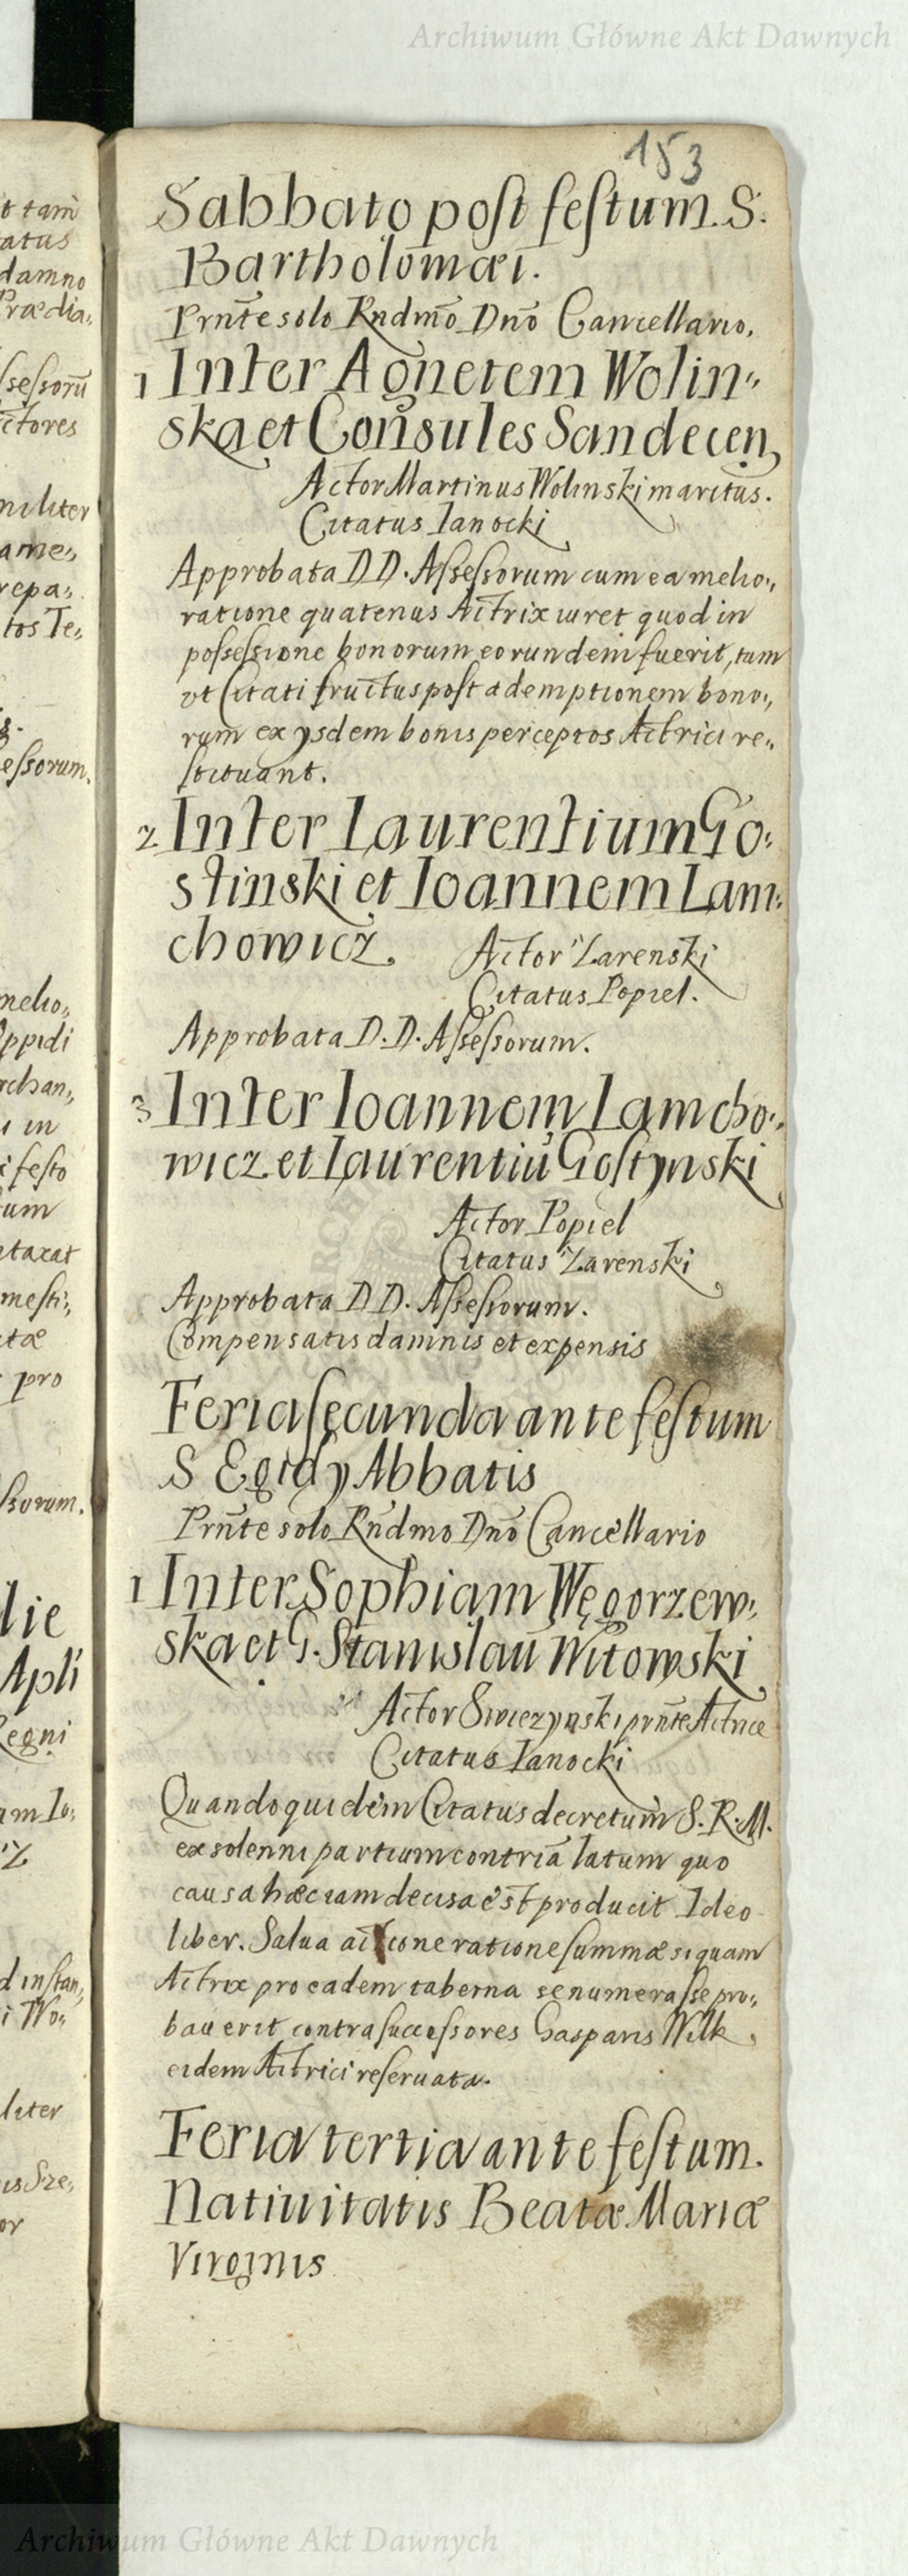 Archiwum Główne Akt Dawnych
153
t tam
atus
damno
Prædia„
ssessorū
ctores
militer
ame„
repa„
tos Te„
essorum.
melio„
Oppidi
rchan„
u in
i festo
um
ntaxat
mesti„
ctæ
pro
ssorum.
lie
Apli
Regni
um Io„
d instan„
i Wo„
liter
is Sze„
or
Sabbato post festum. S.
Bartholomæi.
Prn̄te solo Rndm̄o Dn̄o Cancellario.
1 Inter Agnetem Wolin„
ska et Consules Sandecen̄
Actor Martinus Wolinski maritus.
Citatus Ianocki
Approbata D D. Assessorum cum ea melio„
ratione quatenus Actrix iuret quod in
possessione bonorum eorundem fuerit, tum
vt Citati fructus post ademptionem bono„
rum ex ysdem bonis perceptos Actrici re„
stituant.
2 Inter Laurentium Go„
stinski et Ioannem Lam„
chowicz.
Actor Zarenski
Citatus Popiel.
Approbata D. D. Assessorum.
3 Inter Ioannem Lamcho„
wicz et Laurentiū Gostynski
Actor Popiel
Citatus Zarenski
Approbata D D. Assessorum.
Compensatis damnis et expensis
Feria secunda ante festum
S Egidy Abbatis
Prn̄te solo Rn̄dmo Dn̄o Cancellario
1 Inter Sophiam Węgorzew„
ska et G. Stanislaū Witowski
Actor Swiezynski prn̄te Actrice
Citatus Ianocki
Quandoquidem Citatus decretum S. R. M.
ex solenni partium contriā latum quo
causa hæc iam decisa est producit Ideo
liber. Salua actione ratione summæ si quam
Actrix pro eadem taberna se numerasse pro„
bauerit contra successores Gasparis Wilk
eidem Actrici reseruata.
Feria tertia ante festum.
Natiuitatis Beatæ Mariæ
Virginis
Archiwum Główne Akt Dawnych